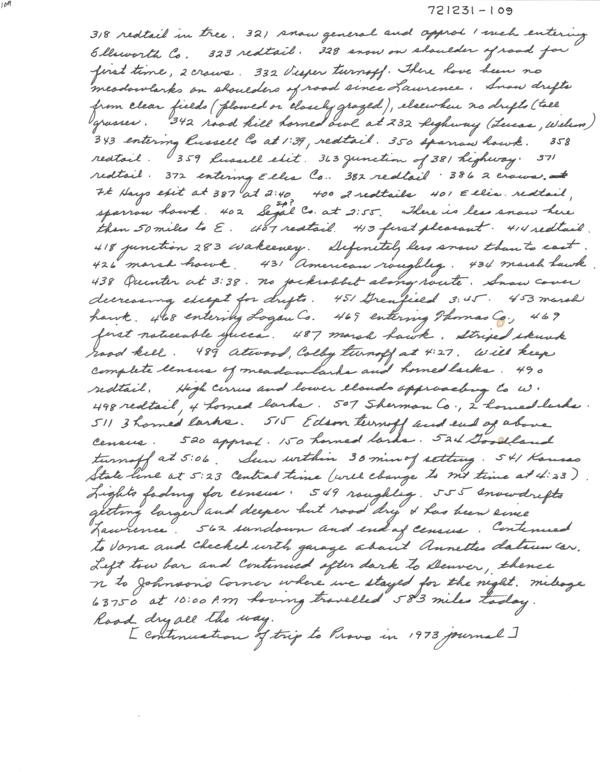 109
721231-109
318 redtail in tree. 321 snow general and approx 1 inch entering
Ellsworth Co. 323 redtail. 328 snow on shoulder of road for
first time, 2 crows. 332 Vesper turnoff. There have been no
meadowlarks on shoulders of road since Lawrence. Snow drifts
from clear fields (plowed or closely grazed), elsewhere no drifts (tall
grasses. 342 road kill horned owl at 232 highway (Lucas, Wilson)
343 entering Russell Co at 1:39, redtail. 350 sparrow hawk. 358
redtail. 359 Russell exit. 363 junction of 381 highway. 371
redtail. 372 entering Ellis Co. 382 redtail. 386 2 crows.
Ft Hays exit at 387 at 2:40. 400 2 redtails 401 Ellis. redtail,
sp?
sparrow hawk. 402 Segal Co. at 2:55. There is less snow here
than 50 miles to E. 407 redtail. 413 first pleasant. 414 redtail.
418 junction 283 Wakeeney. Definitely less snow than to east.
426 marsh hawk. 431 American roughleg. 434 marsh hawk
438 Quinter at 3:38. no jackrabbit along route. Snow cover
decreasing except for drifts. 451 Grenfield 3:45. 453 marsh
hawk. 468 entering Logan Co. 469 entering Thomas Co., 469
first noticeable yucca. 487 marsh hawk. Striped skunk
road kill. 489 Atwood, Colby turnoff at 4:27. Will keep
complete census of meadowlarks and horned larks. 490
redtail. High Cirrus and lower clouds approaching to W.
498 redtail, 4 horned larks. 507 Sherman Co., 2 horned larks.
511 3 horned larks. 515 Edson turnoff and end of above
census. 520 approx. 150 horned larks. 524 Goodland
turnoff at 5:06. Sun within 30 min of setting. 541 Kansas
State line at 5:23 Central time (will change to mt time at 4:23).
Lights fading for census. 549 roughleg. 555 snowdrifts
getting larger and deeper but road dry & has been since
Lawrence. 562 sundown and end of census. Continued
to Vona and checked with garage about Annettes datsun car.
Left tow bar and continued after dark to Denver, thence
n to Johnson's Corner where we stayed for the night. mileage
63750 at 10:00 P.M having travelled 583 miles today.
Road dry all the way.
[Continuation of trip to Provo in 1973 journal]